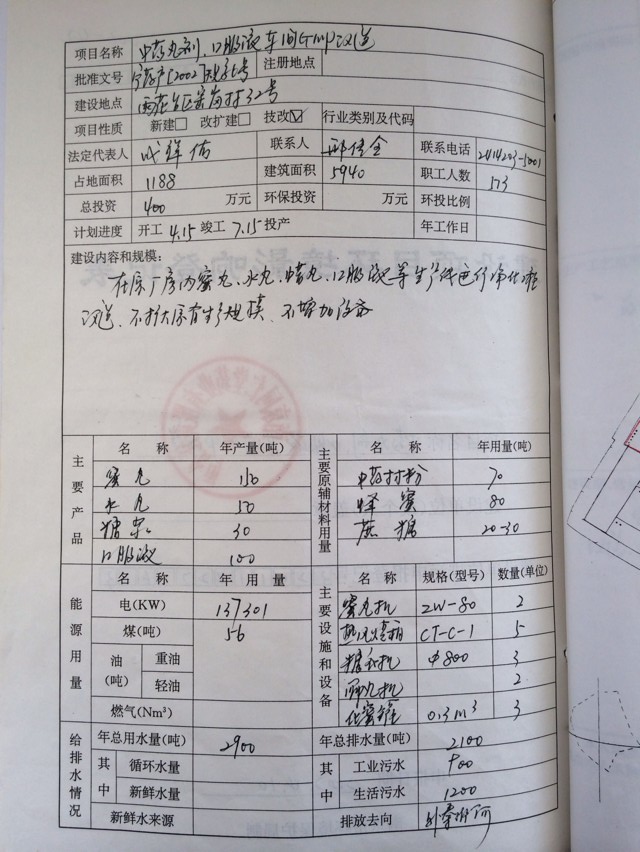 项目名称 中药丸剂、口服液车间GMP改造
批准文号 注册地点
建设地点 雨花台区 32号
项目性质 新建□ 改扩建□ 技改☑ 行业类别及代码
法定代表人 联系人 联系电话
占地面积 1188 建筑面积 5940 职工人数 173
总投资 400 万元 环保投资 万元 环投比例
计划进度 开工 4.15 竣工 7.15 投产 年工作日
建设内容和规模:
在原厂房内蜜丸、水丸、糖丸、口服液等生产线进行净化
改造、不扩大原有生产规模、不增加设备
主要产品 名称 年产量(吨) 主要原辅材料用量 名称 年用量(吨)
蜜丸 150 中药材粉 70
水丸 50 蜂蜜 80
糖浆 30 蔗糖 20-30
口服液 100
能源用量 名称 年用量 主要设施和设备 名称 规格(型号) 数量(单位)
电(KW) 137301 蜜丸机 ZW-80 2
煤(吨) 56 热风烤箱 CT-C-1 5
油(吨) 重油 φ800 3
轻油 2
燃气(Nm³) 化蜜罐 0.3m³ 3
给排水情况 年总用水量(吨) 2900 年总排水量(吨) 2100
其中 循环水量 其中 工业污水 900
新鲜水量 生活污水 1200
新鲜水来源 排放去向 外秦淮河